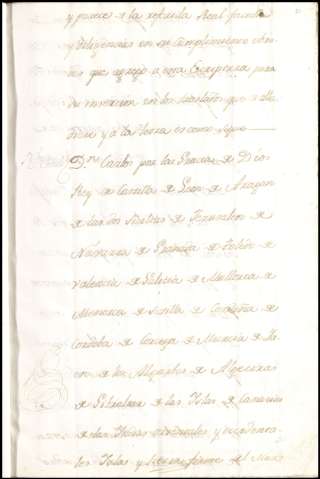 y parece de la referida Real
y diligencias en su cumplimiento
que agrego a esta Escriptura para
su insercion en los traslados que se
y a la letra es como sigue
Dn. Carlos por la Gracia de Dios
Rey de Castilla de Leon de Aragon
de las dos Sicilias de Jerusalen de
Navarra de Granada de Toledo de
Valencia de Galicia de Mallorca de
Menorca de Sevilla de Cerdeña de
Cordoba de Corcega de Murcia de Ja
en de los Algarbes de Algeciras
de Gibraltar de las Islas de Canarias
de las Indias orientales y occidenta
les Islas y tierra firme del Mar